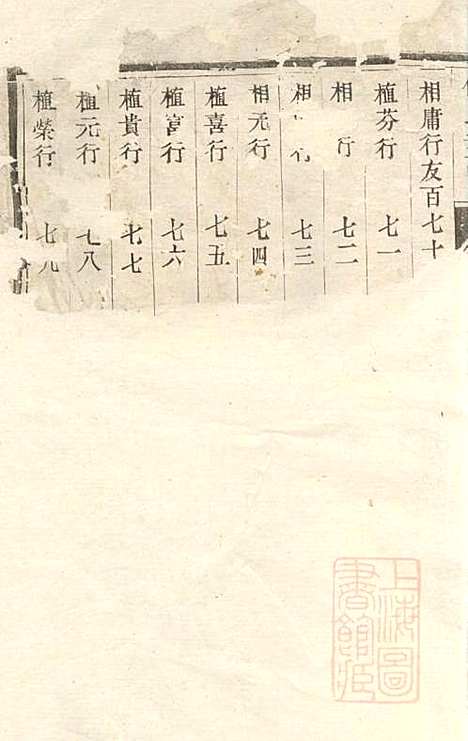 相庸行友百七十
植芬行 七一
相 行 七二
相 行 七三
相元行 七四
植喜行 七五
植富行 七六
植貴行 七七
植元行 七八
植榮行 七九
上海圖書館藏